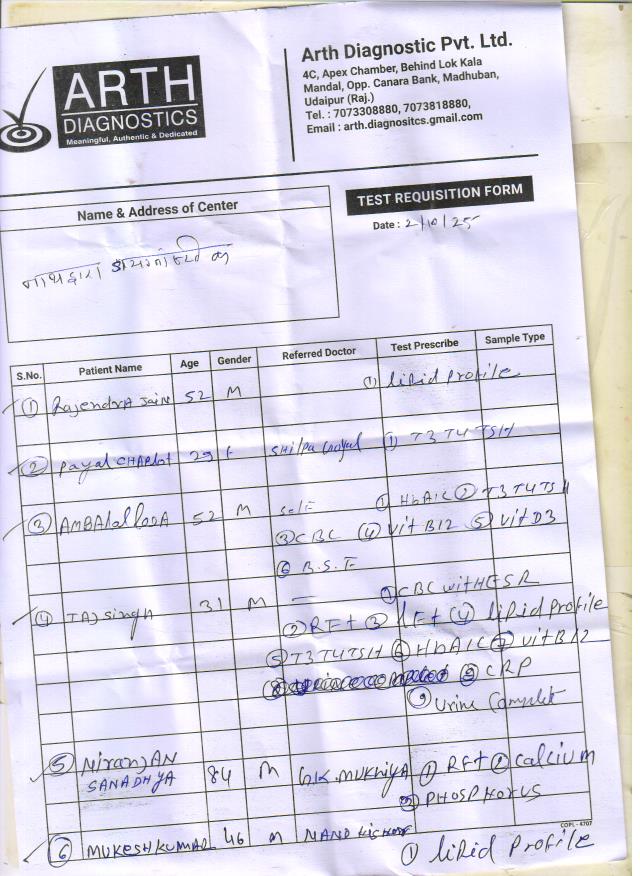 ARTH
DIAGNOSTICS
Meaningful, Authentic & Dedicated
Arth Diagnostic Pvt. Ltd.
4C, Apex Chamber, Behind Lok Kala
Mandal, Opp. Canara Bank, Madhuban,
Udaipur (Raj.)
Tel. : 7073308880, 7073818880,
Email : arth.diagnositcs.gmail.com
Name & Address of Center
TEST REQUISITION FORM
Date : 2/10/25
नाथद्वारा डायग्नोस्टिक
S.No. Patient Name Age Gender Referred Doctor Test Prescribe Sample Type
① Rajendra Jain 52 M ① liPid profile
② Payal CHAPlot 29 F SHilPa Goyal ① T3 T4 TSH
③ AMBAlal 52 M self ① HbA1C ② T3 T4 TSH
③ CBC ④ Vit B12 ⑤ Vit D3
⑥ B.S.F
④ TAJ SingH 31 M – ① CBC witH ESR
② RFt ③ LFt ④ liPid Profile
⑤ T3 T4 TSH ⑥ HbA1C ⑦ Vit B12
⑧ CRP
⑨ Urine Complet
⑤ NiranJAN 84 M G.K. MUKHiYA ① RFt ② Calcium
SANADHYA
③ PHOSPHORUS
COPL - 4707
⑥ MUKESH KUMAR 46 M NAND KiSHOR ① liPid Profile